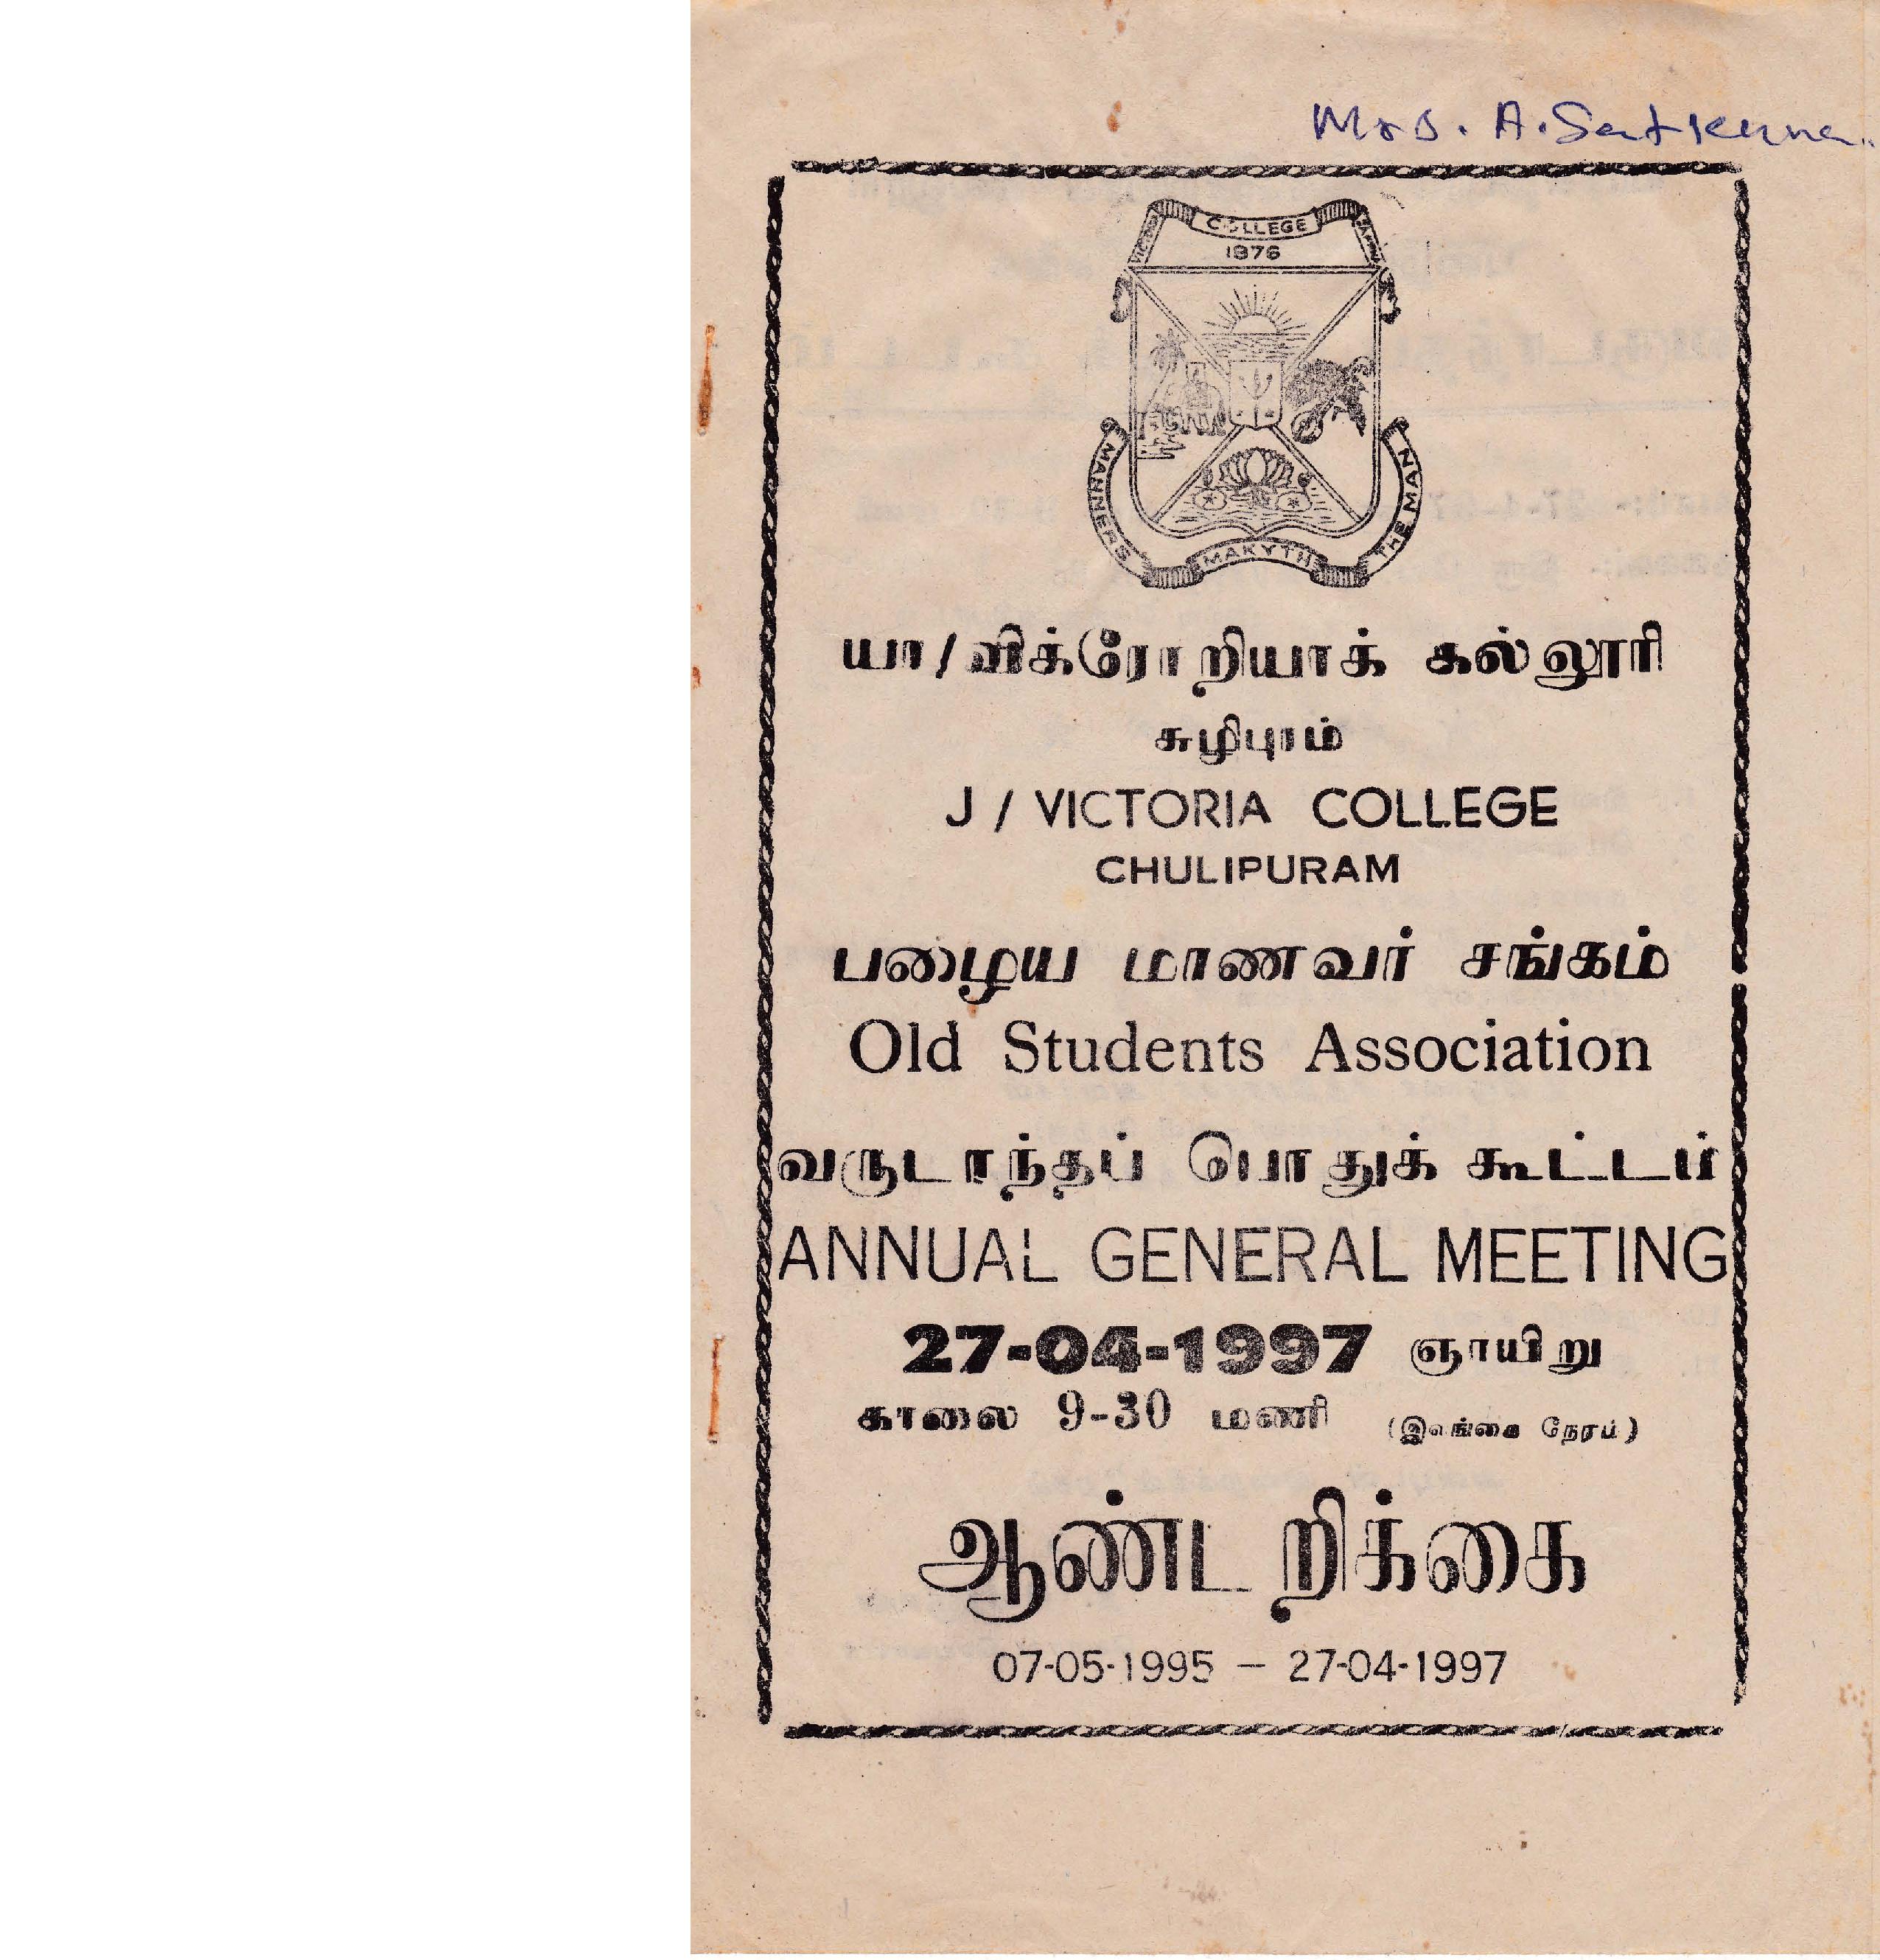 Mrs. A. Satkuna..
COLLEGE
1876
MANNERS MAKYTH THE MAN
யா/விக்ரோறியாக் கல்லூரி
சுழிபுரம்
J / VICTORIA COLLEGE
CHULIPURAM
பழைய மாணவர் சங்கம்
Old Students Association
வருடாந்தப் பொதுக் கூட்டம்
ANNUAL GENERAL MEETING
27-04-1997 ஞாயிறு
காலை 9-30 மணி (இலங்கை நேரம்)
ஆண்டறிக்கை
07-05-1995 – 27-04-1997